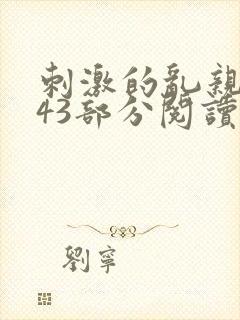 刺激的亂親
43部分閱讀
劉寧